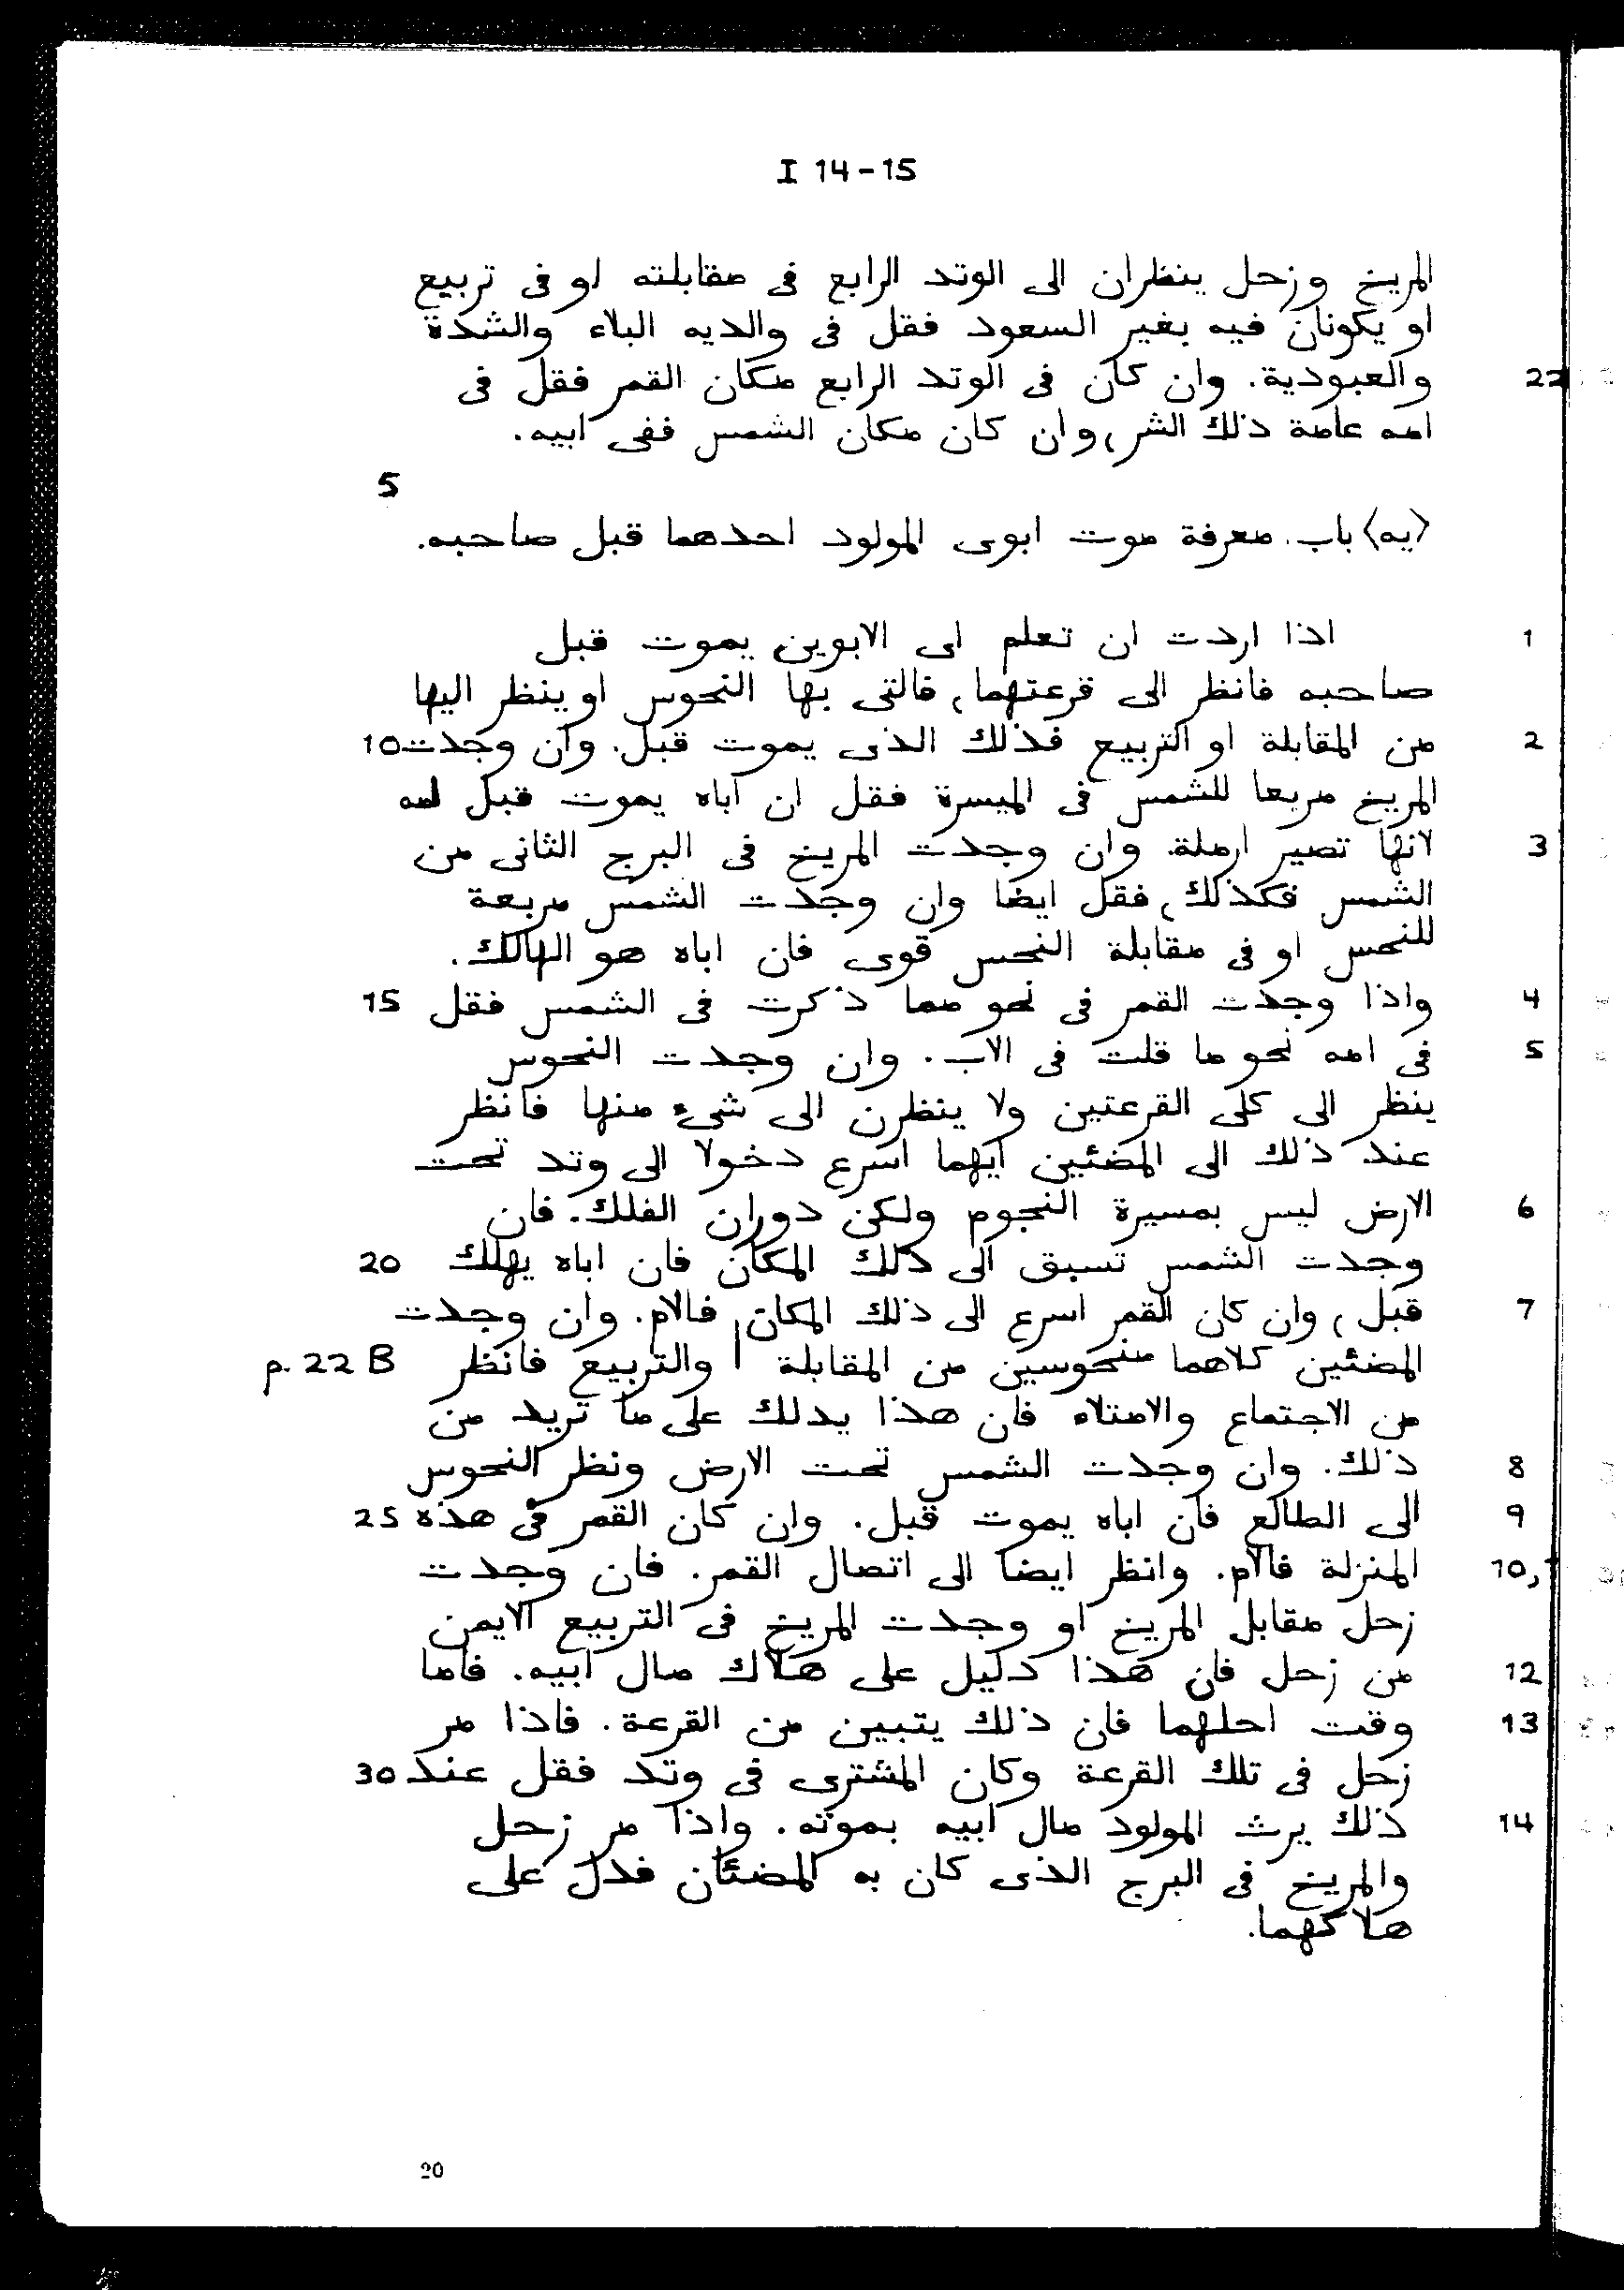 I 14-15
المريخ وزحل ينظران الى الوتد الرابع فى مقابلته او فى تربيع
او يكونان فيه بغير السعود فقل فى والديه البلاء والشدة
والعبودية. وان كان فى الوتد الرابع مكان القمر فقل فى 22
امه عامة ذلك الشر، وان كان مكان الشمس ففى ابيه.
5
〈يه〉 باب. معرفة موت ابوى المولود احدهما قبل صاحبه.
اذا اردت ان تعلم اى الابوين يموت قبل 1
صاحبه فانظر الى قرعتهما، فالتى بها النحوس او ينظر اليها
من المقابلة او التربيع فذلك الذى يموت قبل. وان وجدت 10 2
المريخ مربعا للشمس فى الميسرة فقل ان اباه يموت قبل امه
لانها تصير ارملة. وان وجدت المريخ فى البرج الثانى من 3
الشمس فكذلك، فقل ايضا وان وجدت الشمس مربعة
للنحس او فى مقابلة النحس قوى فان اباه هو الهالك.
واذا وجدت القمر فى نحو مما ذكرت فى الشمس فقل 15 4
فى امه نحو ما قلت فى الاب. وان وجدت النحوس 5
ينظر الى كلى القرعتين ولا ينظرن الى شىء منها فانظر
عند ذلك الى المضئين ايهما اسرع دخولا الى وتد تحت
الارض ليس بمسيرة النجوم ولكن دوران الفلك. فان 6
وجدت الشمس تسبق الى ذلك المكان فان اباه يهلك 20
قبل، وان كان القمر اسرع الى ذلك المكان فالام. وان وجدت 7
المضئين كلاهما منحوسين من المقابلة | والتربيع فانظر p. 22 B
من الاجتماع والامتلاء فان هذا يدلك على ما تريد من
ذلك. وان وجدت الشمس تحت الارض ونظر النحوس 8
الى الطالع فان اباه يموت قبل. وان كان القمر فى هذه 25 9
المنزلة فالام. وانظر ايضا الى اتصال القمر. فان وجدت 10,
زحل مقابل المريخ او وجدت المريخ فى التربيع الايمن
من زحل فان هذا دليل على هلاك مال ابيه. فاما 12
وقت احلهما فان ذلك يتبين من القرعة. فاذا مر 13
زحل فى تلك القرعة وكان المشترى فى وتد فقل عند 30
ذلك يرث المولود مال ابيه بموته. واذا مر زحل 14
والمريخ فى البرج الذى كان به المضئان فدل على
هلاكهما.
20